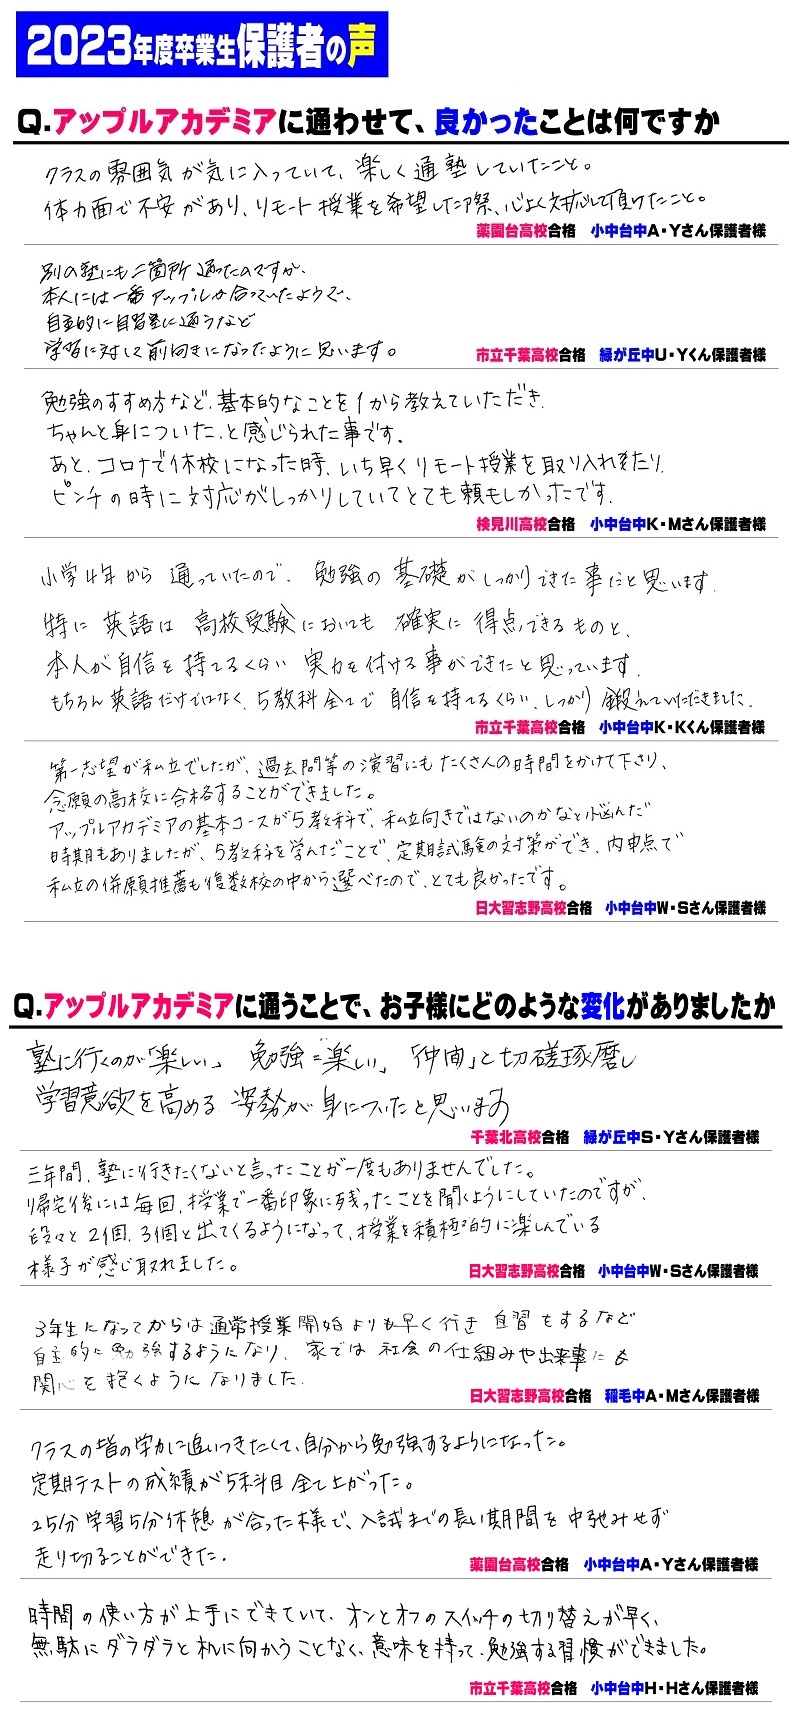 2023年度卒業生保護者の声
Q.アップルアカデミアに通わせて、良かったことは何ですか
クラスの雰囲気が気に入っていて、楽しく通塾していたこと。
体力面で不安があり、リモート授業を希望した際、心よく対応して頂けたこと。
薬園台高校合格 小中台中A・Yさん保護者様
別の塾にも二箇所通ったのですが、
本人には一番アップルが合っていたようで、
自主的に自習室に通うなど
学習に対して前向きになったように思います。
市立千葉高校合格 緑が丘中U・Yくん保護者様
勉強のすすめ方など、基本的なことを1から教えていただき、
ちゃんと身についた、と感じられた事です。
あと、コロナで休校になった時、いち早くリモート授業を取り入れたり、
ピンチの時に対応がしっかりしていてとても頼もしかったです。
検見川高校合格 小中台中K・Mさん保護者様
小学4年から通っていたので、勉強の基礎がしっかりできた事だと思います。
特に英語は高校受験においても確実に得点できるものと、
本人が自信を持てるくらい実力を付ける事ができたと思っています。
もちろん英語だけではなく、5教科全てで自信を持てるくらい、しっかり鍛えていただきました。
市立千葉高校合格 小中台中K・Kくん保護者様
第一志望が私立でしたが、過去問等の演習にもたくさんの時間をかけて下さり、
念願の高校に合格することができました。
アップルアカデミアの基本コースが5教科で、私立向きではないのかなと悩んだ
時期もありましたが、5教科を学んだことで、定期試験の対策ができ、内申点で
私立の併願推薦も複数校の中から選べたので、とても良かったです。
日大習志野高校合格 小中台中W・Sさん保護者様
Q.アップルアカデミアに通うことで、お子様にどのような変化がありましたか
塾に行くのが「楽しい」 勉強=「楽しい」 「仲間」と切磋琢磨し
学習意欲を高める姿勢が身についたと思います
千葉北高校合格 緑が丘中S・Yさん保護者様
三年間、塾に行きたくないと言ったことが一度もありませんでした。
帰宅後には毎回、授業で一番印象に残ったことを聞くようにしていたのですが、
段々と2個、3個と出てくるようになって、授業を積極的に楽しんでいる
様子が感じ取れました。
日大習志野高校合格 小中台中W・Sさん保護者様
3年生になってからは通常授業開始よりも早く行き自習をするなど
自主的に勉強するようになり、家では社会の仕組みや出来事にも
関心を抱くようになりました。
日大習志野高校合格 稲毛中A・Mさん保護者様
クラスの皆の学力に追いつきたくて、自分から勉強するようになった。
定期テストの成績が5科目全て上がった。
25分学習5分休憩が合った様で、入試までの長い期間を中弛みせず
走り切ることができた。
薬園台高校合格 小中台中A・Yさん保護者様
時間の使い方が上手にできていて、オンとオフのスイッチの切り替えが早く、
無駄にダラダラと机に向かうことなく、意味を持って、勉強する習慣ができました。
市立千葉高校合格 小中台中H・Hさん保護者様